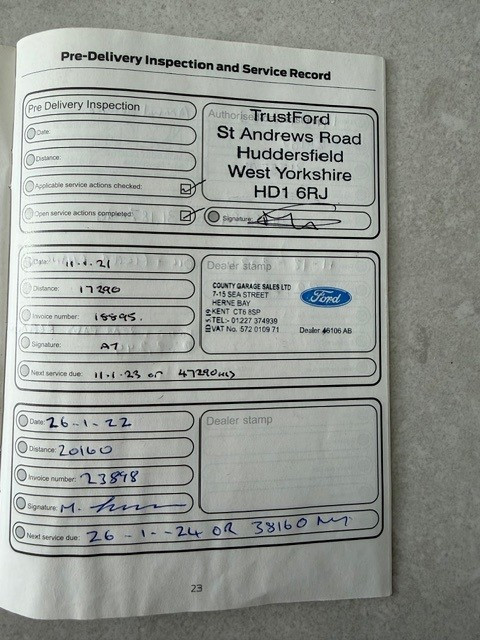 Pre-Delivery Inspection and Service Record
Pre Delivery Inspection
Date:
Distance:
Applicable service actions checked:
Open service actions completed:
TrustFord
St Andrews Road
Huddersfield
West Yorkshire
HD1 6RJ
Signature:
Date: 11.1.21
Distance: 17290
Invoice number: 18895.
Signature: AT
Next service due: 11.1.23 or 47290
Dealer stamp
COUNTY GARAGE SALES LTD
7-15 SEA STREET
HERNE BAY
KENT CT6 8SP
TEL:- 01227 374939
VAT No. 572 0109 71
Ford
Dealer 46106 AB
Date: 26-1-22
Distance: 20160
Invoice number: 23898
Signature: M.
Next service due: 26-1--24 OR 38160
Dealer stamp
23